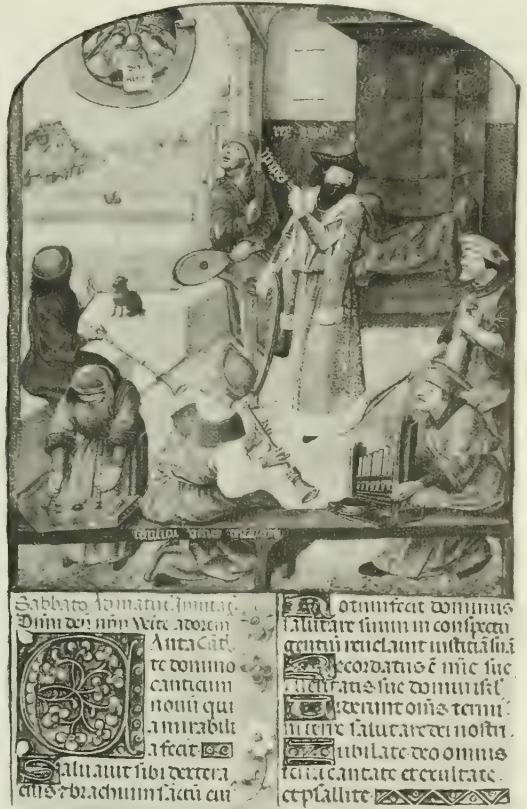 Sabbato ad matut. Invitat.
Dnm deu nrm Venite adorem
Antate
te domino
canticum
nouū qui
a mirabili
a fecit
Saluauit sibi dextera
eius ⁊ brachium sāctū eiꝰ
Notum fecit dominus
salutare suum in conspectu
gentiū reuelauit iusticiā suā
Recordatus ē mīe sue
⁊ ueritatis sue domui isrl
Uiderunt om̄s termi
ni terre salutare dei nostri
Iubilate deo omnis
terra cantate et exultate
et psallite